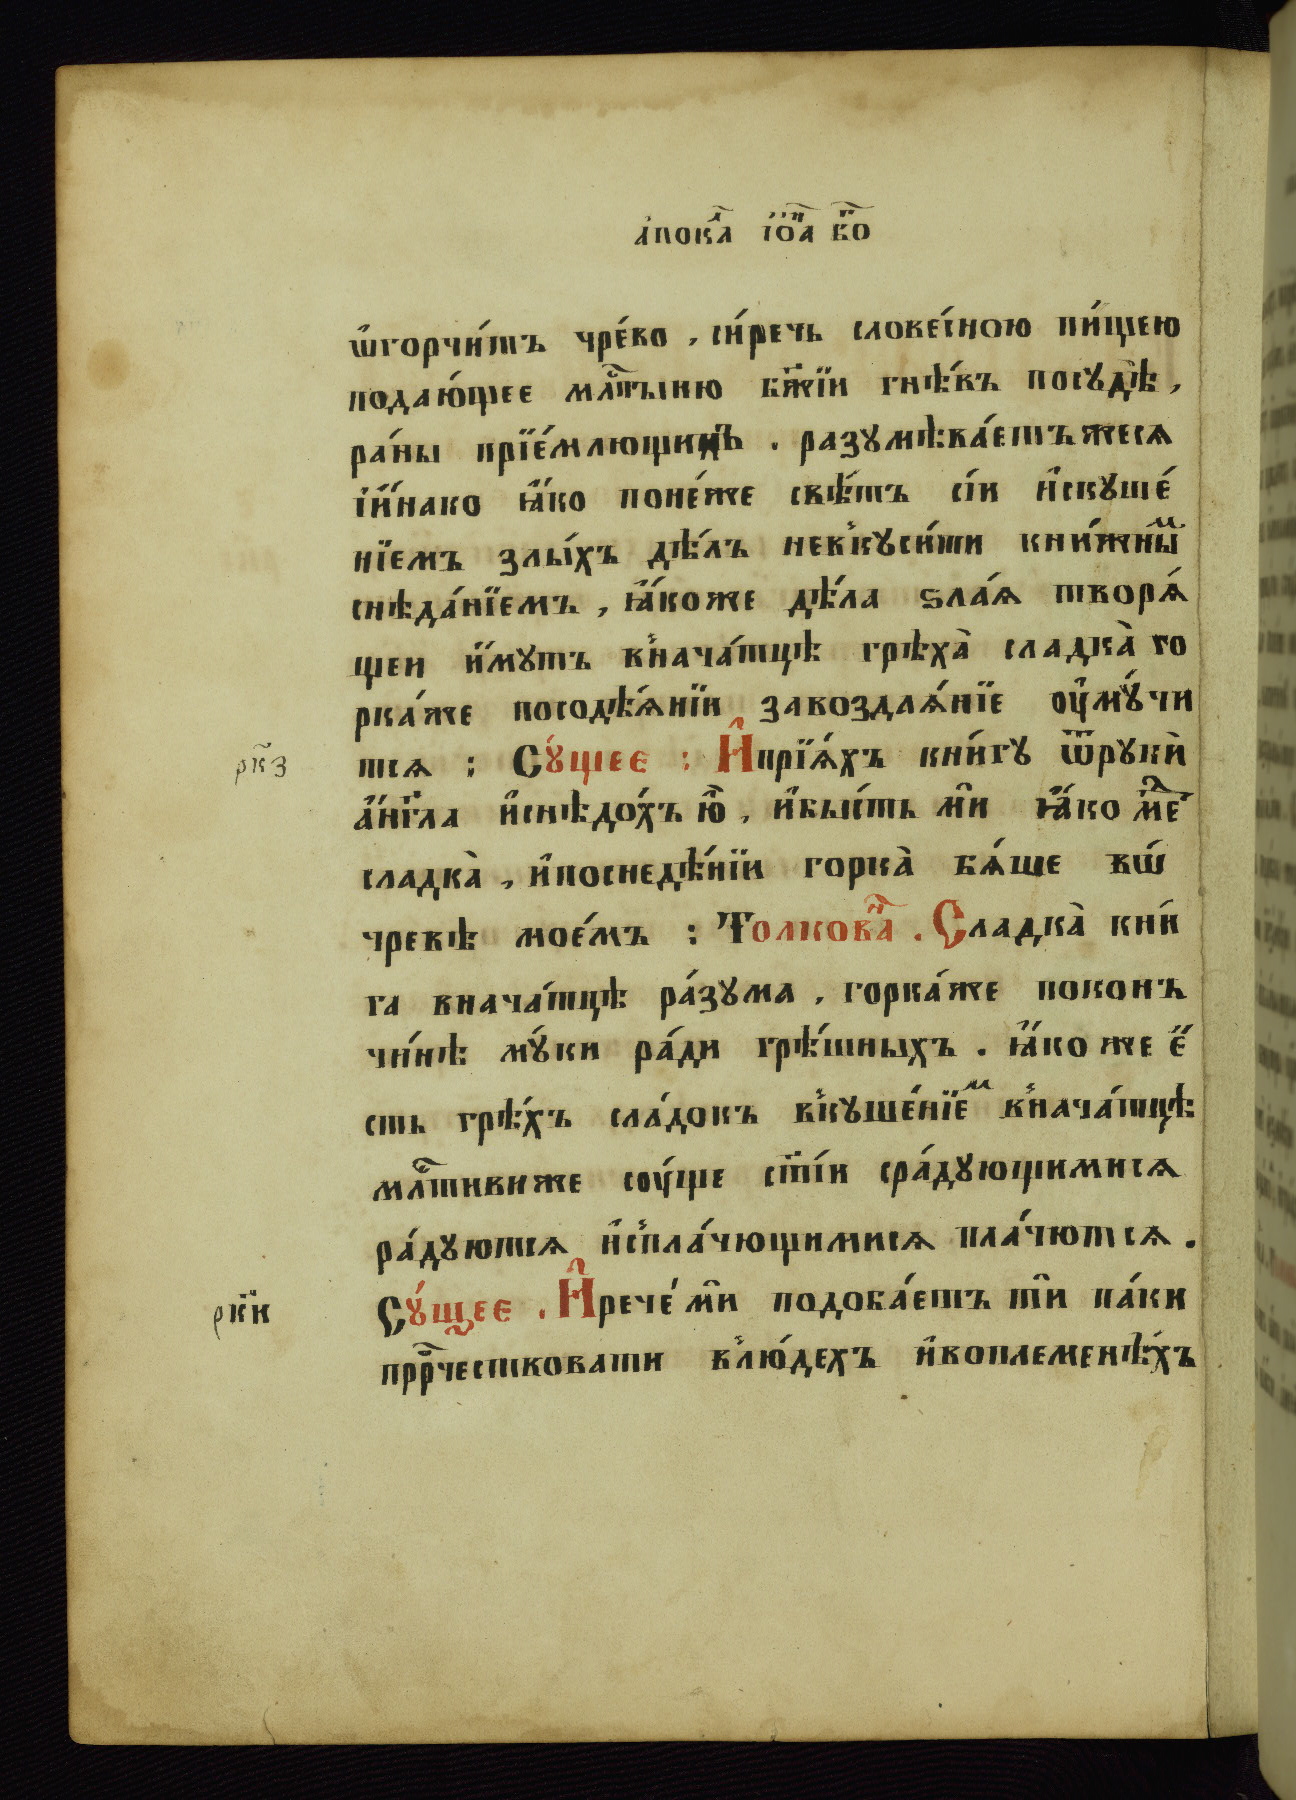 а҆пока́л҃ і҆ѡа́н҃ бг҃о
ѡ҆горчи́тъ чре́во , си́речь слове́сною пи́щею
подаю́щее мл҃стынию бж҃їи гнѣ́въ посудѣ̀ ,
ра́ны прїе́млющимъ . разумѣва́етъжеся
і҆и́нако ꙗ҆́ко поне́же свѣ́тъ сі́и и҆скуше́
нїемъ злы́хъ дѣ́лъ невкуси́ти кни́жны́м
снѣда́нїемъ , ꙗ҆́коже дѣ́ла ѕла́ѧ творѧ́
щеи и҆́мутъ внача́тцѣ грѣха̀ сладка̀ го
рка́же посодѣ́ѧнїи завоздаѧ́нїе оу҆му́чи
тсѧ : Су́щее : И҆прїѧ́хъ кни́гу ѿрукѝ
а҆́нг҃ла и҆снѣдо́хъ ю҆̀ , и҆бы́сть мѝ ꙗ҆́ко ме́д
сладка̀ , и҆поснеде́нїи горка̀ бѧ́ше вѡ́
чревѣ мое́мъ : Толкова́н . Сладка̀ кни́
га внача́тцѣ ра́зума , горка́же поконъ
чи́нѣ му́ки ра́ди грѣ́шныхъ . ꙗ҆́коже е҆́
сть грѣ́хъ сла́докъ вкуше́нїем внача́тцѣ
мл҃стивиже соу́ще ст҃і́и сра́дующимисѧ
ра́дуютсѧ и҆спла́чющимисѧ пла́чютсѧ .
Су́щее . И҆рече́ мѝ подоба́етъ тѝ па́ки
прр҃чествовати влю́дехъ и҆воплеменѣ́хъ
рк҃з
рк҃и